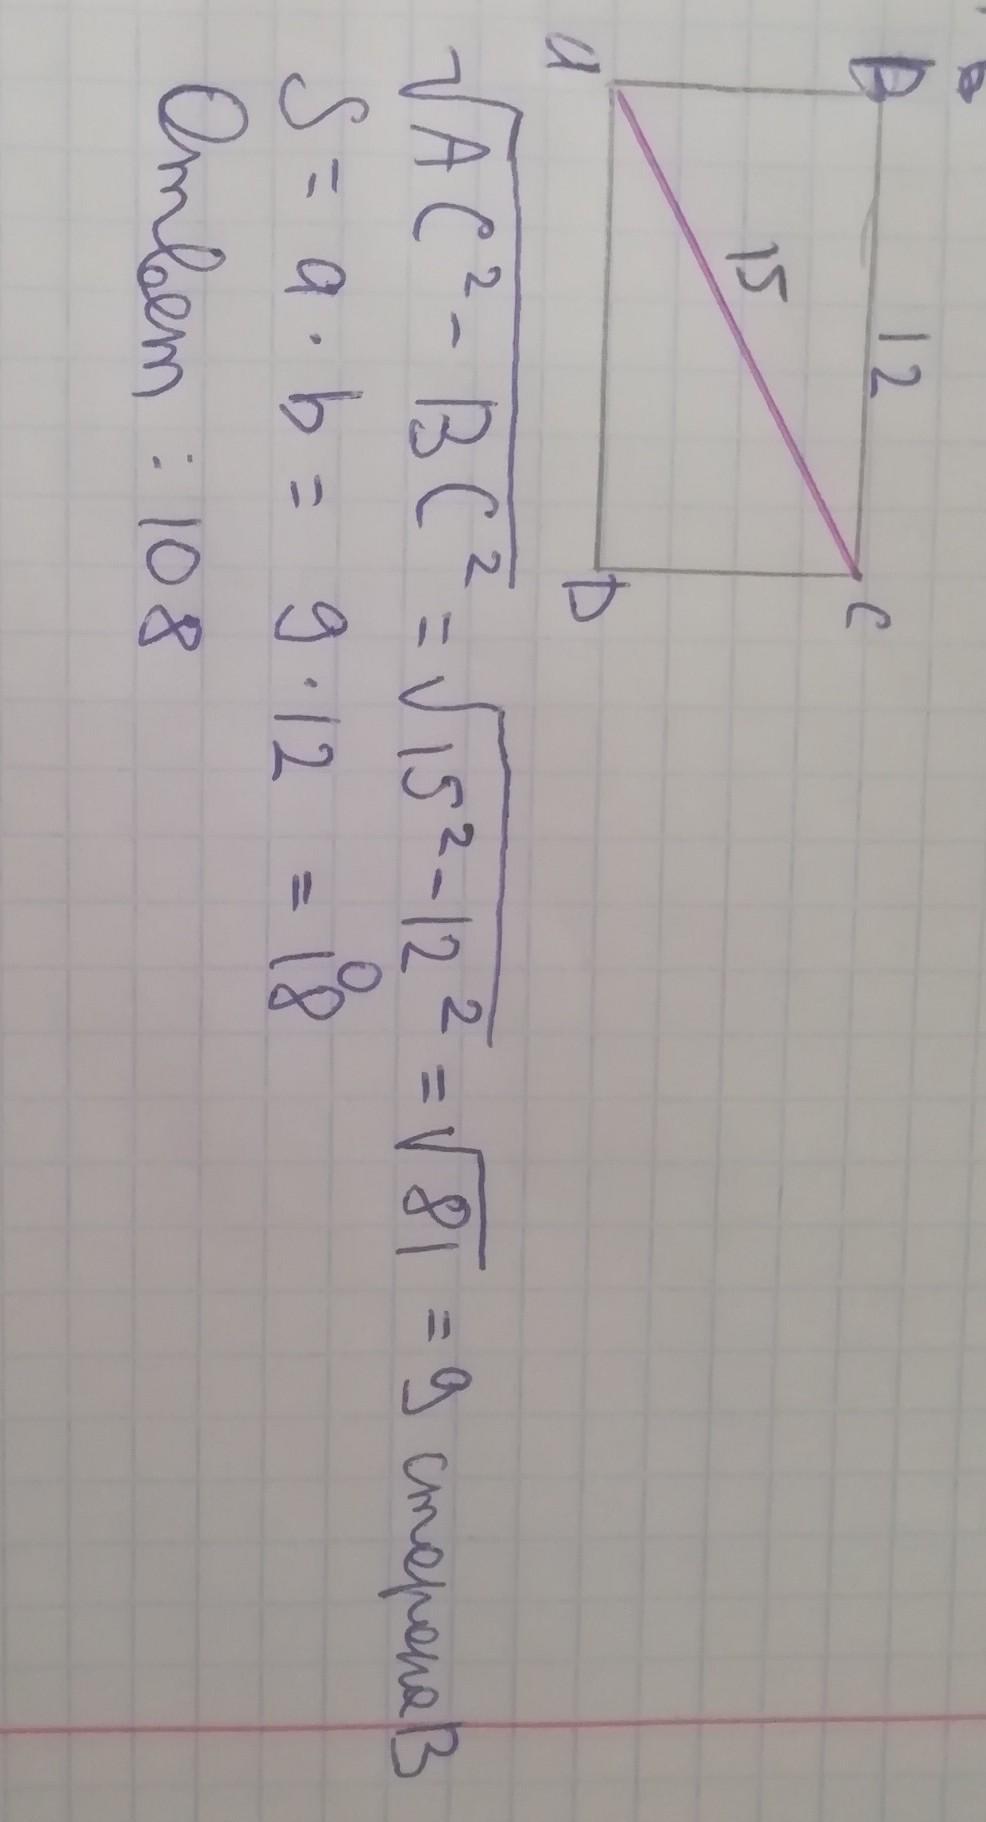 B 12 C
15
a D
√AC² - BC² = √15² - 12² = √81 = 9 сторона B
S = a · b = 9 · 12 = 108
Ответ : 108